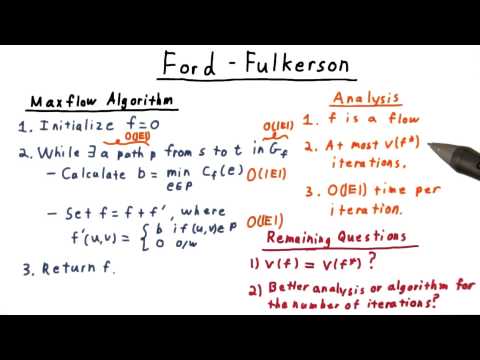 Ford - Fulkerson
Maxflow Algorithm
1. Initialize f=0
O(|E|)
O(|E|)
2. While ∃ a path p from s to t in G_f
- Calculate b = min C_f(e)
e∈p
O(|E|)
- Set f = f + f', where
O(|E|)
f'(u,v) = { b if (u,v)∈p
0 o/w
3. Return f.
Analysis
1. f is a flow
2. At most v(f*)
iterations.
3. O(|E|) time per
iteration.
Remaining Questions
1) V(f) = V(f*) ?
2) Better analysis or algorithm for
the number of iterations?